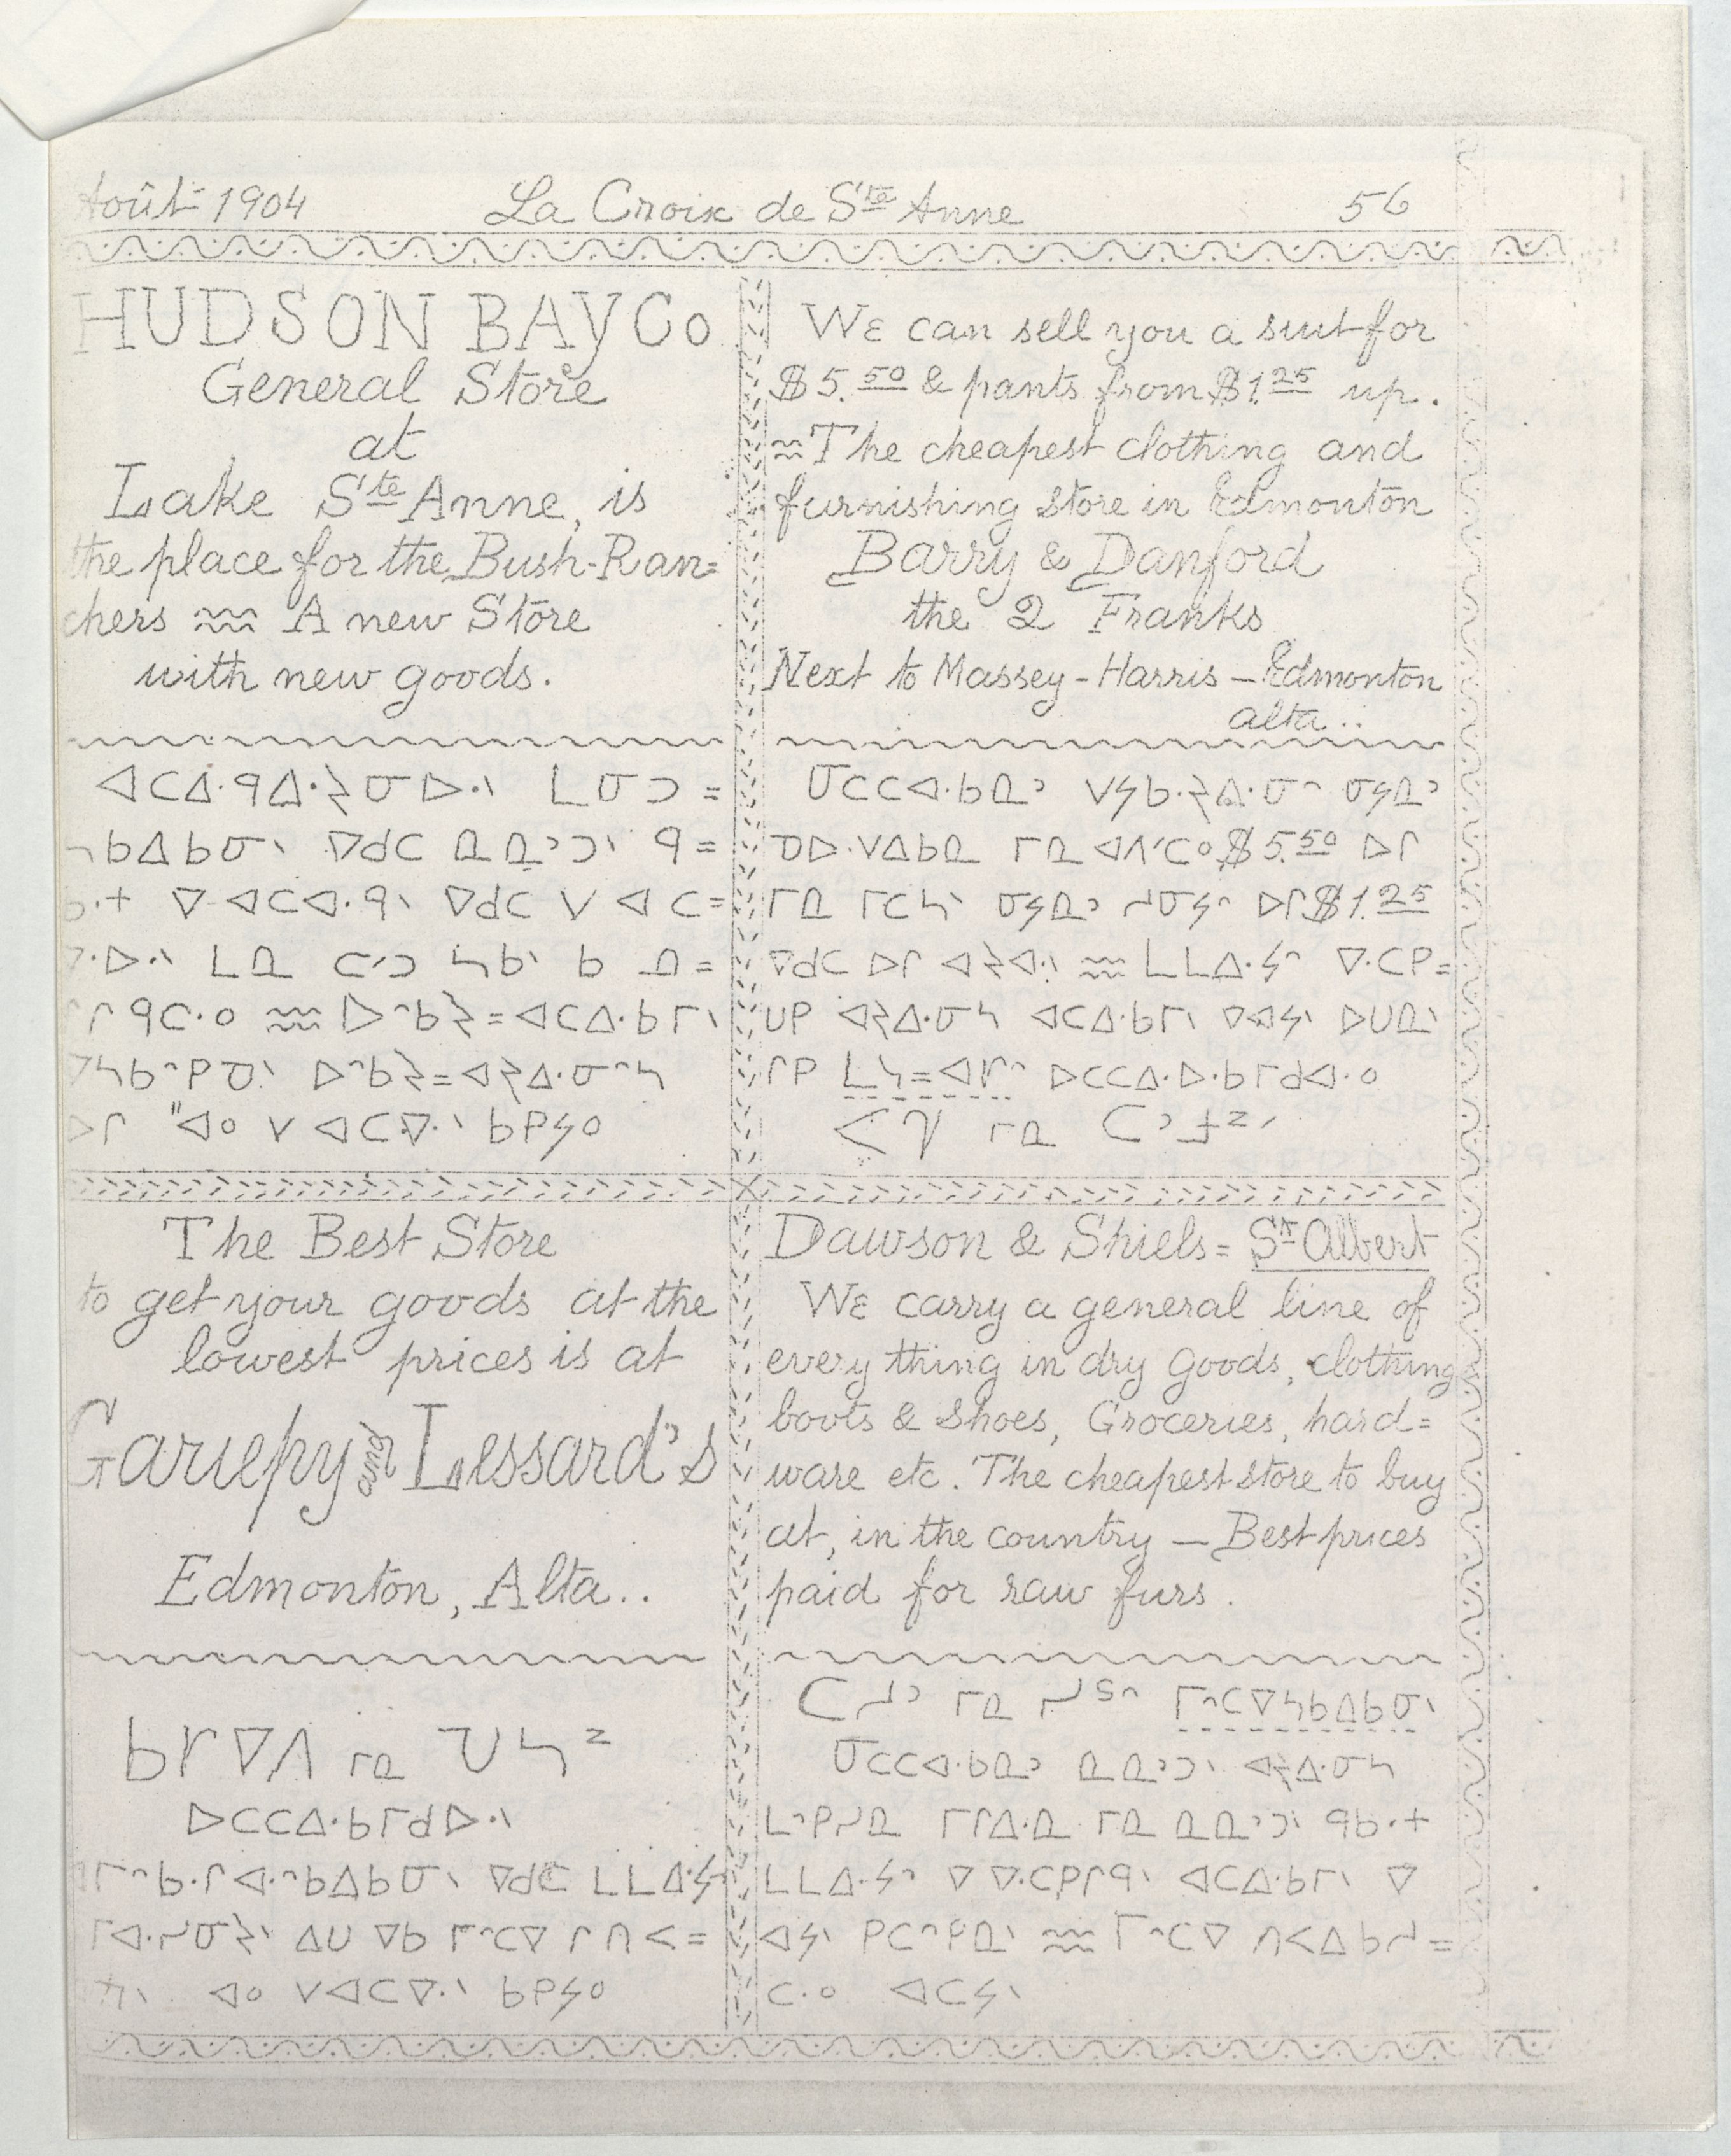 Août 1904 La Croix de Ste Anne 56
HUDSON BAY Co
General Store
at
Lake Ste Anne, is
the place for the Bush-Ran=
chers ≈ A new Store
with new goods.
ᐊᑕᐃᐧᑫᐃᐧᔨᓂᐅᐧᐠ ᒪᓂᑐ =
ᓴᑲᐃᑲᓂᐠ ᐁᑯᑕ ᓇᓇᐣᑐᐠ ᑫ =
ᐁ ᐊᑕᐊᐧᑫᐠ ᐁᑯᑕ ᐯ ᐊ ᑕ=
ᒪᓇ ᑕᐟᑐ ᓴᑲᐠ ᑲ ᓇ =
ᑫᑕᐧᐤ ≈ ᐅᐢᑲᔨ=ᐊᑕᐃᐧᑲᒥᐠ
ᐅᐢᑲᔨ=ᐊᔨᐃᐧᓂᐢᓴ
ᐅᒋ ᐯ ᐊᑕᐁᐧᐠ ᑲᑭᔭᐤ
We can sell you a suit for
$5.50 & pants from $1.25 up.
≈ The cheapest clothing and
furnishing store in Edmonton
Barry & Danford
the 2 Franks
Next to Massey-Harris – Edmonton
alta..
ᓂᑕᑕᐊᐧᑲᓇᐣ ᐯᔭᑲᐧᔨᐃᐧᓂᐢ ᓂᔭᓇᐣ
ᒥᓇ ᐊᐱᐟᑕᐤ $5.50 ᐅᒋ
ᒥᓇ ᒥᑕᓴᐠ ᓂᔭᓇᐣ ᓱᓂᔭᐢ ᐅᒋ $1.25
ᐁᑯᑕ ᐅᒋ ᐊᔨᐊᐧᐠ ≈ ᒪᒪᐃᐧᔭᐢ ᐁᐧᑕᑭ=
ᑌᑭ ᐊᔨᐃᐧᓂᓴ ᐊᑕᐃᐧᑲᒥᐠ ᐁᐊᔭᐠ ᐅᑌᓇᐠ
ᒋᑭ ᒪᓴ=ᐊᒋᐢ ᐅᑕᑕᐃᐧᐅᐧᑲᒥᑯᐊᐧᐤ
The Best Store
to get your goods at the
lowest prices is at
Gariepy and Lessard's
Edmonton, Alta..
ᑲᒋᐁᐱ ᒥᓇ ᓓᓴᐟ
ᐅᑕᑕᐃᐧᑲᒥᑯᐅᐧᐠ
ᐊᒥᐢᑲᐧᒋᐊᐧᐢᑲᐃᑲᓂᐠ ᐁᑯᑕ ᒪᒪᐃᐧᔭᐢ
ᒥᐊᐧᓯᓂᔨᐠ ᐃᑌ ᐁᑲ ᒥᐢᑕᐁ ᒋ ᑎᐸ =
ᐊᐤ ᐯᐊᑕᐁᐧᐠ ᑲᑭᔭᐤ
Dawson & Shiels = St Albert
We carry a general line of
everything in dry Goods, clothing
boots & Shoes, Groceries, hard=
ware etc. The cheapest store to buy
at, in the country – Best prices
paid for raw furs.
ᒥᐢᑕᐁᓴᑲᐃᑲᓂᐠ
ᓂᑕᑕᐊᐧᑲᓇᐣ ᓇᓇᐣᑐᐠ ᐊᔨᐃᐧᓂᓴ
ᒪᐢᑭᓯᓇ ᒥᒋᐃᐧᓇ ᒥᓇ ᓇᓇᐣᑐᐠ ᑫᑲᐧᕀ
ᒪᒪᐃᐧᔭᐢ ᐁ ᐁᐧᑕᑭᒋᑫᐠ ᐊᑕᐃᐧᑲᒥᐠ ᐁ
ᐊᔭᐠ ᑭᑕᐢᑭᓇᐠ ≈ ᒥᐢᑕᐁ ᑎᐸᐃᑲᓱ=
ᑕᐧᐤ ᐊᑕᔭᐠ